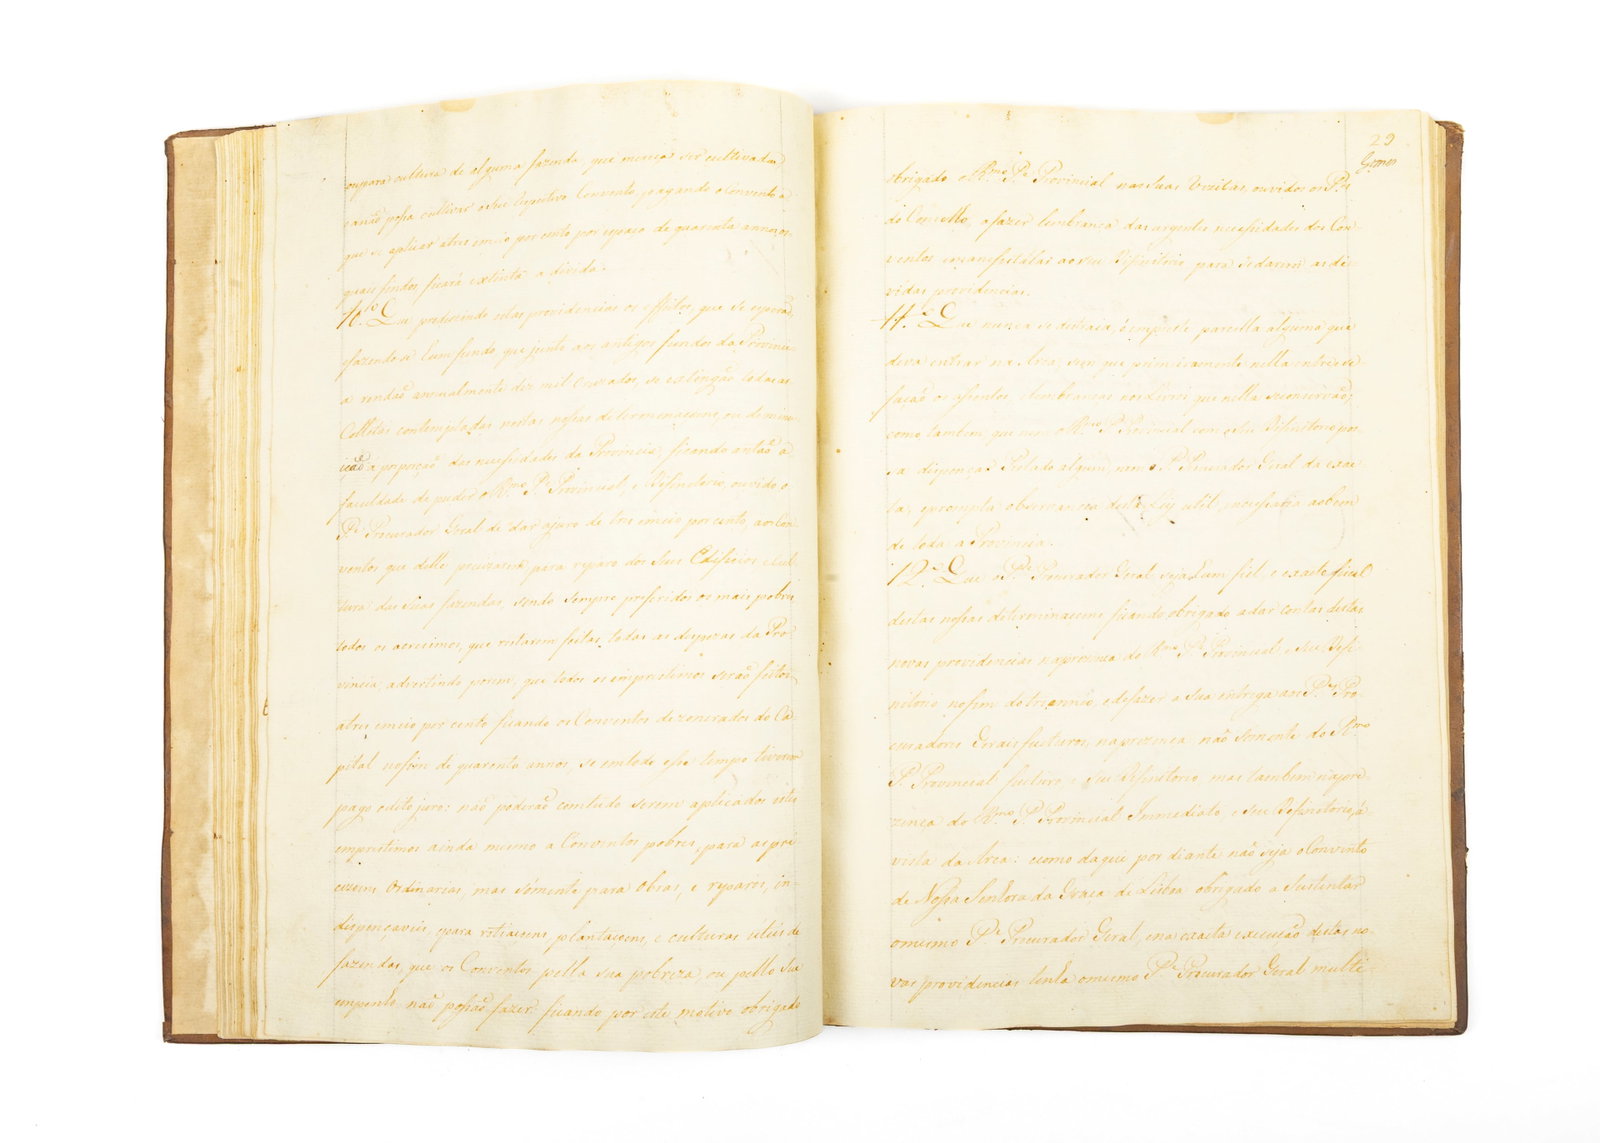 oupara cultura de alguma fazenda que mereça ser cultivada
e anaõ possa cultivar oseu respectivo Convento, pagando o Convento a
que se aplicar atres emeio por cento por espaço de quarenta annos, os
quais findos ficará extincta a divida.
10.º Que produzindo estas providencias os effeitos, que se esperaõ,
efazendose hum fundo que junto aos antigos fundos da Provincia
a rendaõ annualmente dez mil Cruzados, se extingaõ todas as
Colletas contempladas nestas nossas determinacoens, ou deminu-
içaõ á proporçaõ das necessidades da Provincia; ficando entaõ a
faculdade de poder o R.mo P.e Provincial, e Difinitorio, ouvido o
P.e Procurador Geral de dar ajuro de tres emeio por cento, aos Con-
ventos que delle precizarem para reparo dos seus Edificios, e cul-
tura das suas fazendas, sendo sempre preferidos os mais pobres
todos os acrescimos, que restarem feitas todas as despezas da Pro-
vincia, advertindo porem, que todos os imprestimos seraõ feitos
atres emeio por cento ficando os Conventos dezonerados do Ca-
pital nofim de quarenta annos, se emtodo esse tempo tiverem
pago odito juro: naõ poderaõ comtudo serem aplicados estes
imprestimos ainda mesmo a Conventos pobres, para as pre-
cizoens Ordinarias, mas sómente para obras, e reparos, in-
dispençaveis, epara roteaçoens, plantacoens, e culturas utéis de
fazendas, que os Conventos pella sua pobreza, ou pello seu
empenho naõ possaõ fazer: ficando por este motivo obrigado
29
Gomes
obrigado o R.mo P.e Provincial nas suas Vizitas, ouvidos os P.es
do Concelho, afazer lembrança das urgentes necessidades dos Con-
ventos ao seu Difinitorio para sedarem as de-
vidas providencias.
11.º Que nunca se distraia, ó empreste parcella alguma que
deva entrar na Arca, sem que primeiramente nella entre, e se
façaõ os assentos, e lembrancas nos Livros que nella seconservaõ;
como tambem que nem o R.mo P. Provincial com o Seu Difinitorio pos-
sa dispençar Prelado algum, nem o P.e Procurador Geral da exac-
ta, eprompta observancia desta Ley util, enecessaria aobem
de toda a Provincia.
12.º Que o P.e Procurador Geral seja hum fiel, e exacto fiscal
destas nossas determinacoens ficando obrigado adar contas destas
novas providencias naprezença do R.mo P.e Provincial e seu Defi-
nitorio nofim dotriennio, edefazer a sua entrega aos P.es Pro-
curadores Gerais futuros, naprezença naõ somente do R.mo
P. Provincial futuro e seu Difinitorio, mas tambem napre-
zença do R.mo P. Provincial Immediato, e seu Difinitorio, á
vista da Arca: ecomo daqui por diante naõ seja o Convento
de Nossa Senhora da Graca de Lisboa obrigado a sustentar
omesmo P.e Procurador Geral, ena exacta execuçaõ destas no-
vas providencias tenha omesmo P.e Procurador Geral multi-